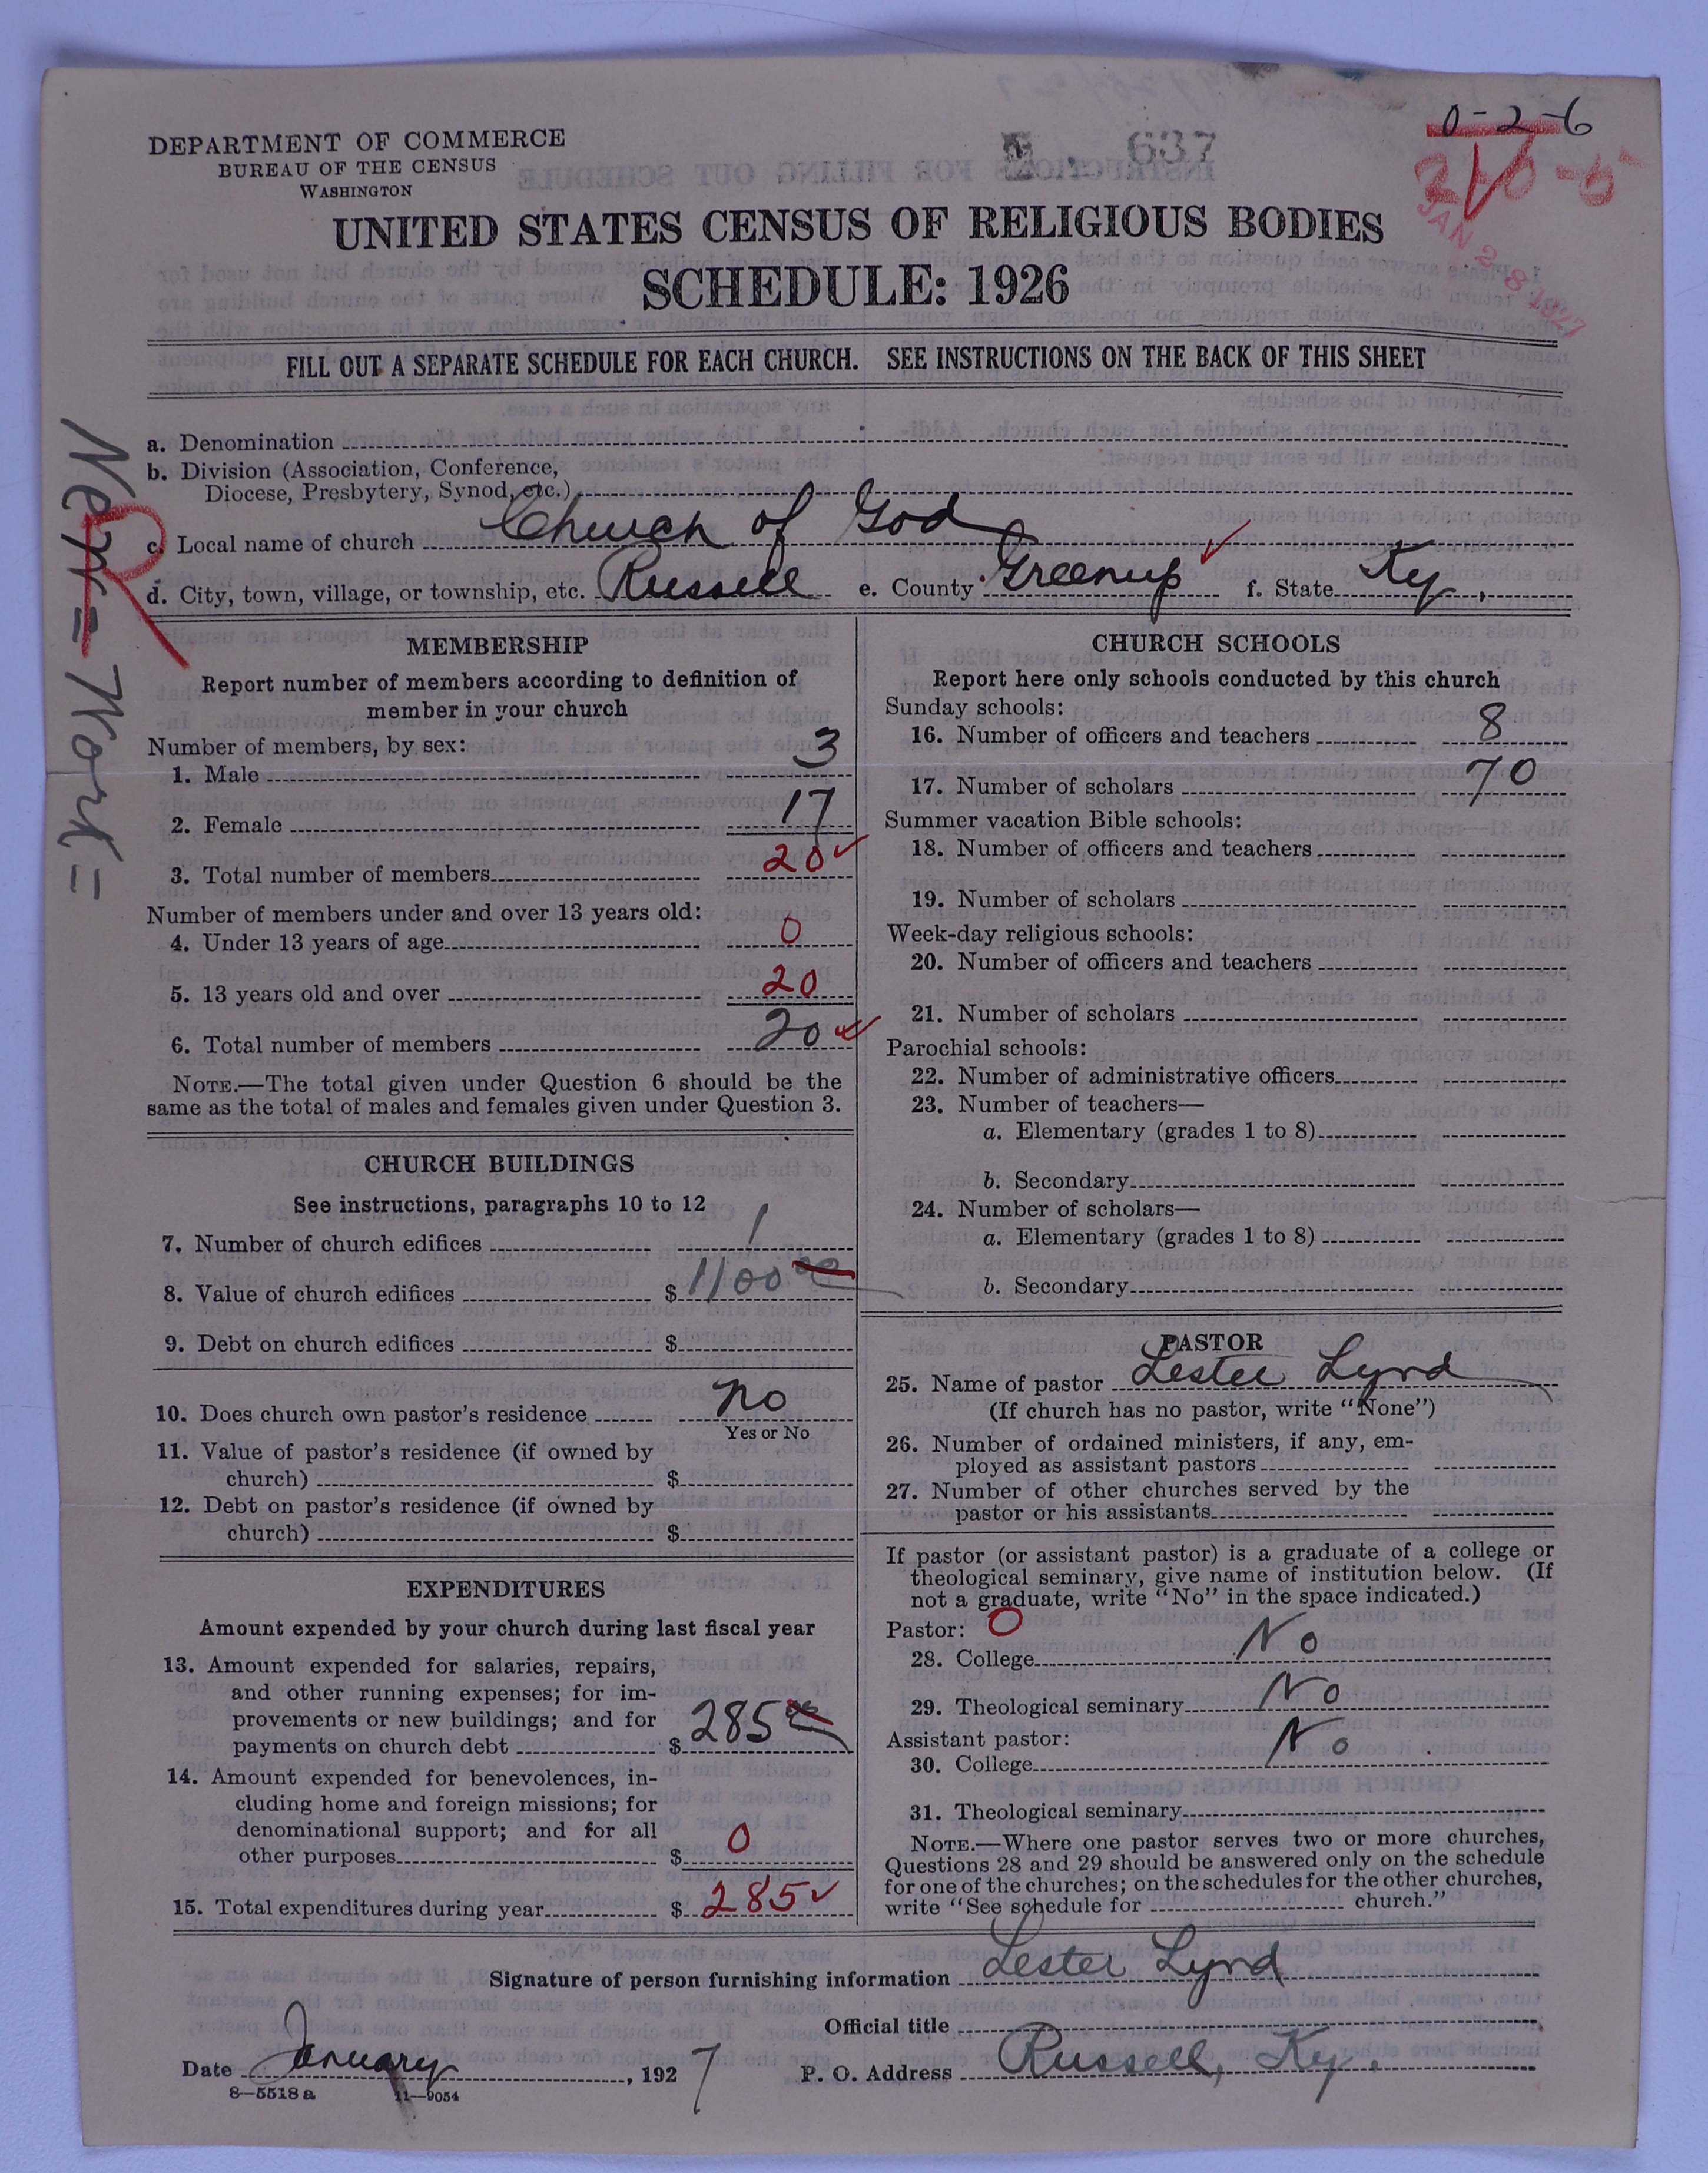 0-2-6
DEPARTMENT OF COMMERCE
BUREAU OF THE CENSUS
WASHINGTON
637
JAN 28 1927
UNITED STATES CENSUS OF RELIGIOUS BODIES
SCHEDULE: 1926
FILL OUT A SEPARATE SCHEDULE FOR EACH CHURCH. SEE INSTRUCTIONS ON THE BACK OF THIS SHEET
a. Denomination
b. Division (Association, Conference,
Diocese, Presbytery, Synod, etc.)
c. Local name of church Church of God
d. City, town, village, or township, etc. Russell e. County Greenup f. State Ky.
MEMBERSHIP
Report number of members according to definition of
member in your church
Number of members, by sex:
1. Male 3
2. Female 17
3. Total number of members 20
Number of members under and over 13 years old:
4. Under 13 years of age 0
5. 13 years old and over 20
6. Total number of members 20
NOTE.—The total given under Question 6 should be the
same as the total of males and females given under Question 3.
CHURCH BUILDINGS
See instructions, paragraphs 10 to 12
7. Number of church edifices 1
8. Value of church edifices $ 1100 00
9. Debt on church edifices $
10. Does church own pastor's residence no
Yes or No
11. Value of pastor's residence (if owned by
church) $
12. Debt on pastor's residence (if owned by
church) $
EXPENDITURES
Amount expended by your church during last fiscal year
13. Amount expended for salaries, repairs,
and other running expenses; for im-
provements or new buildings; and for
payments on church debt $ 285
14. Amount expended for benevolences, in-
cluding home and foreign missions; for
denominational support; and for all
other purposes $ 0
15. Total expenditures during year $ 285
CHURCH SCHOOLS
Report here only schools conducted by this church
Sunday schools:
16. Number of officers and teachers 8
17. Number of scholars 70
Summer vacation Bible schools:
18. Number of officers and teachers
19. Number of scholars
Week-day religious schools:
20. Number of officers and teachers
21. Number of scholars
Parochial schools:
22. Number of administrative officers
23. Number of teachers—
a. Elementary (grades 1 to 8)
b. Secondary
24. Number of scholars—
a. Elementary (grades 1 to 8)
b. Secondary
PASTOR
25. Name of pastor Lester Lynd
(If church has no pastor, write "None")
26. Number of ordained ministers, if any, em-
ployed as assistant pastors
27. Number of other churches served by the
pastor or his assistants
If pastor (or assistant pastor) is a graduate of a college or
theological seminary, give name of institution below. (If
not a graduate, write "No" in the space indicated.)
Pastor: 0
28. College No
29. Theological seminary No
Assistant pastor:
30. College No
31. Theological seminary
NOTE.—Where one pastor serves two or more churches,
Questions 28 and 29 should be answered only on the schedule
for one of the churches; on the schedules for the other churches,
write "See schedule for church."
Signature of person furnishing information Lester Lynd
Official title
Date January, 1927 P. O. Address Russell, Ky.
8—5518 a 11—9054